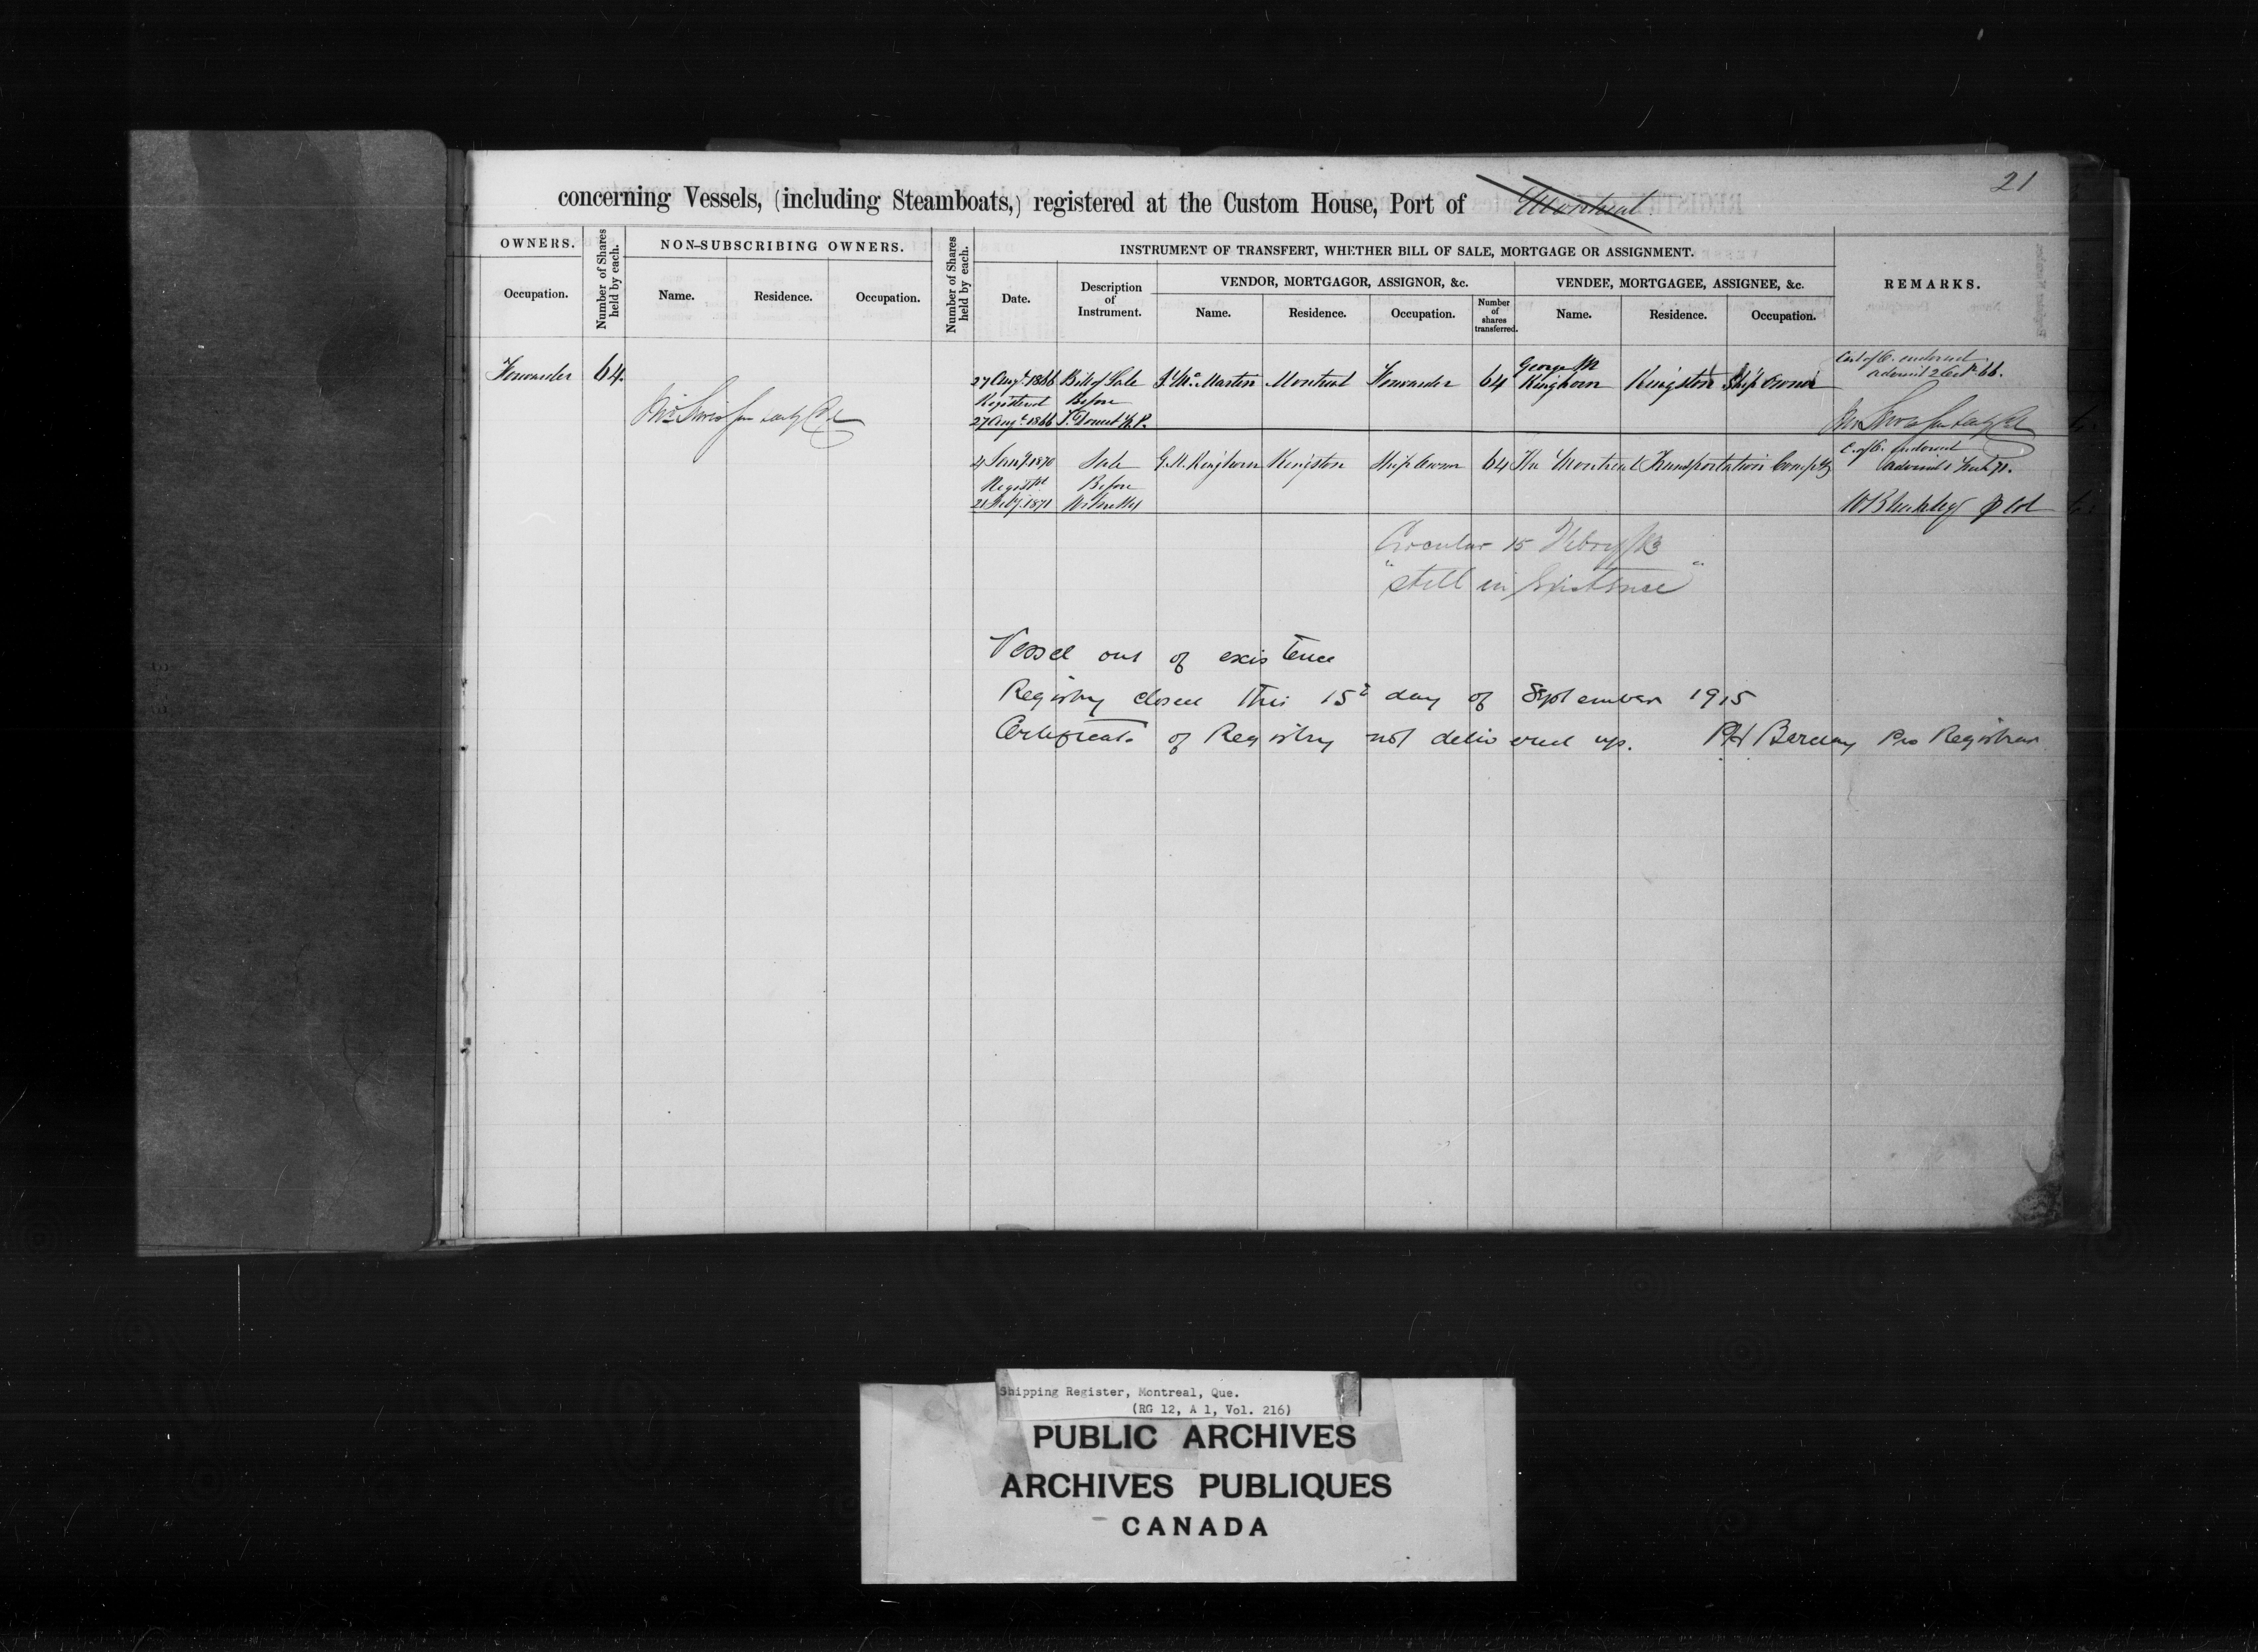 21
concerning Vessels, (including Steamboats,) registered at the Custom House, Port of Montreal
OWNERS.
Number of Shares held by each.
NON-SUBSCRIBING OWNERS.
Number of Shares held by each.
INSTRUMENT OF TRANSFERT, WHETHER BILL OF SALE, MORTGAGE OR ASSIGNMENT.
REMARKS.
VENDOR, MORTGAGOR, ASSIGNOR, &c.
VENDEE, MORTGAGEE, ASSIGNEE, &c.
Occupation. Name. Residence. Occupation. Date. Description of Instrument. Name. Residence. Occupation. Number of shares transferred. Name. Residence. Occupation.
Forwarder 64. 27 Augt. 1866 Bill of Sale Mc Martin Montreal Forwarder 64 George M Kinghorn Kingston Ship Owner
Registered Before
27 Augt. 1866
4 Jany. 1870 Sale G.M. Kinghorn Kingston Ship Owner 64 The Montreal Transportation Compy
Before
21 Feby. 1871
Circular 15 Febry
"still in Existence"
Vessel out of existence
Registry closed this 15th day of September 1915
Certificate of Registry not delivered up. RH Barclay Pro Registrar
Shipping Register, Montreal, Que.
(RG 12, A 1, Vol. 216)
PUBLIC ARCHIVES
ARCHIVES PUBLIQUES
CANADA